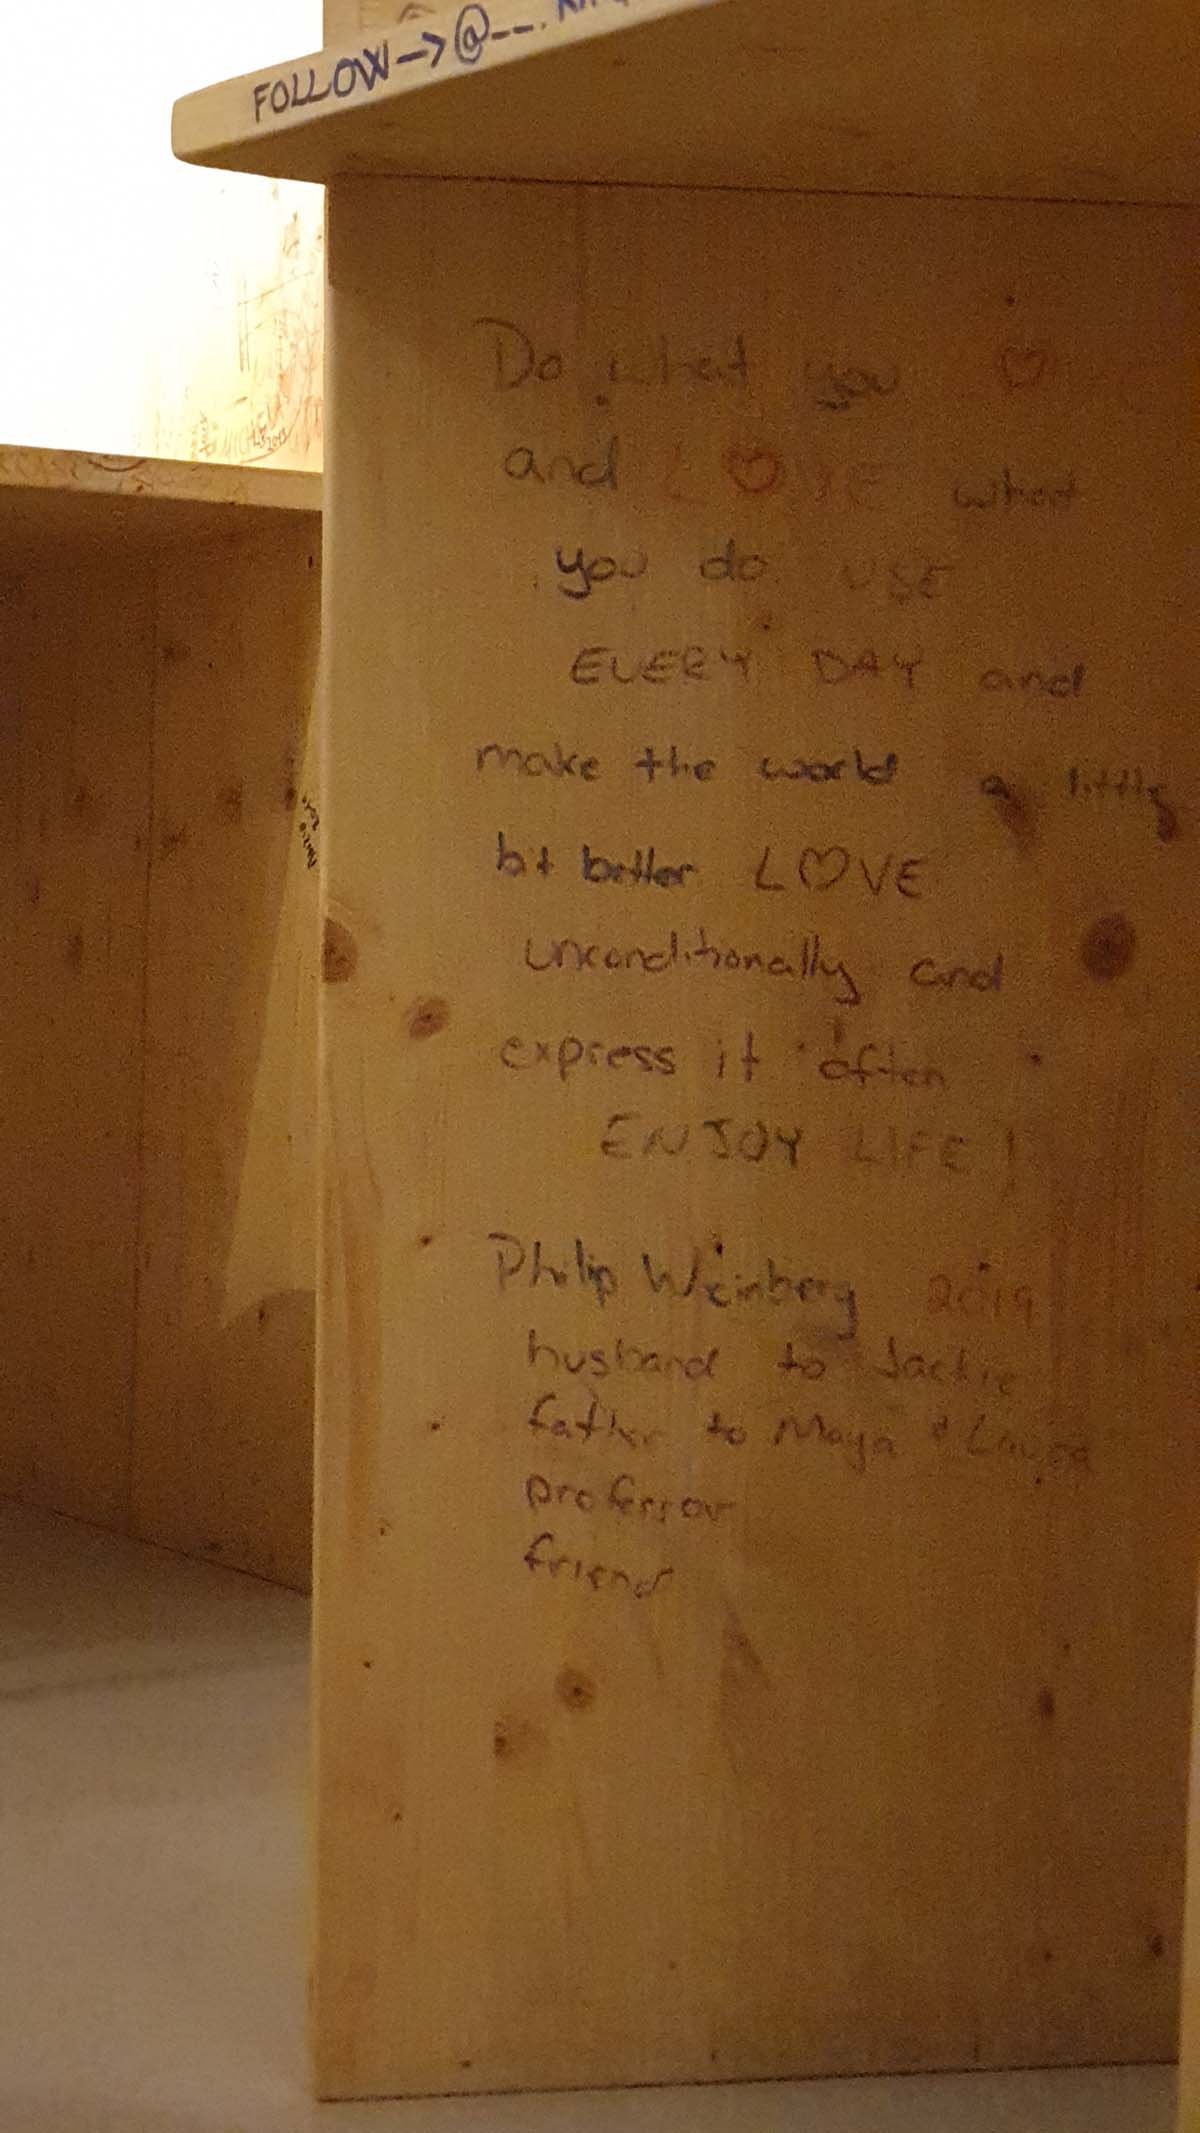 FOLLOW -> @--.
Do what you ♡
and L♡VE what
you do. USE
EVERY DAY and
make the world a little
bit better L♡VE
unconditionally and
express it often
ENJOY LIFE!
Philip Weinberg 2019
husband to Jackie
father to Maya + Laura
professor
friend